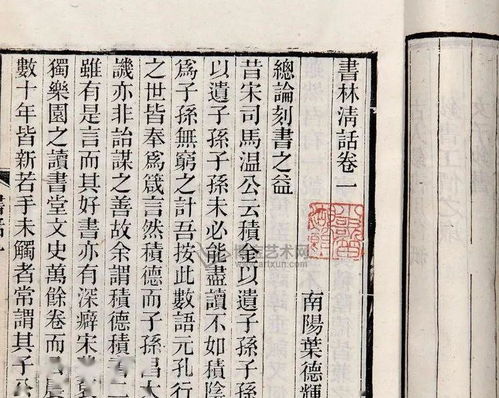 書林清話卷一
南陽葉德輝
總論刻書之益
昔宋司馬温公云積金以遺子孫子孫
以遺子孫子孫未必能盡讀不如積陰
爲子孫無窮之計吾按此數語元孔行
之世皆奉爲箴言然積德而子孫昌大
譏亦非詒謀之善故余謂積德積書二
雖有是言而其好書亦有深癖宋費
獨樂園之讀書堂文史萬餘卷而公晨
數十年皆新若手未觸者常謂其子公
書話一
艺术网
artxun.com